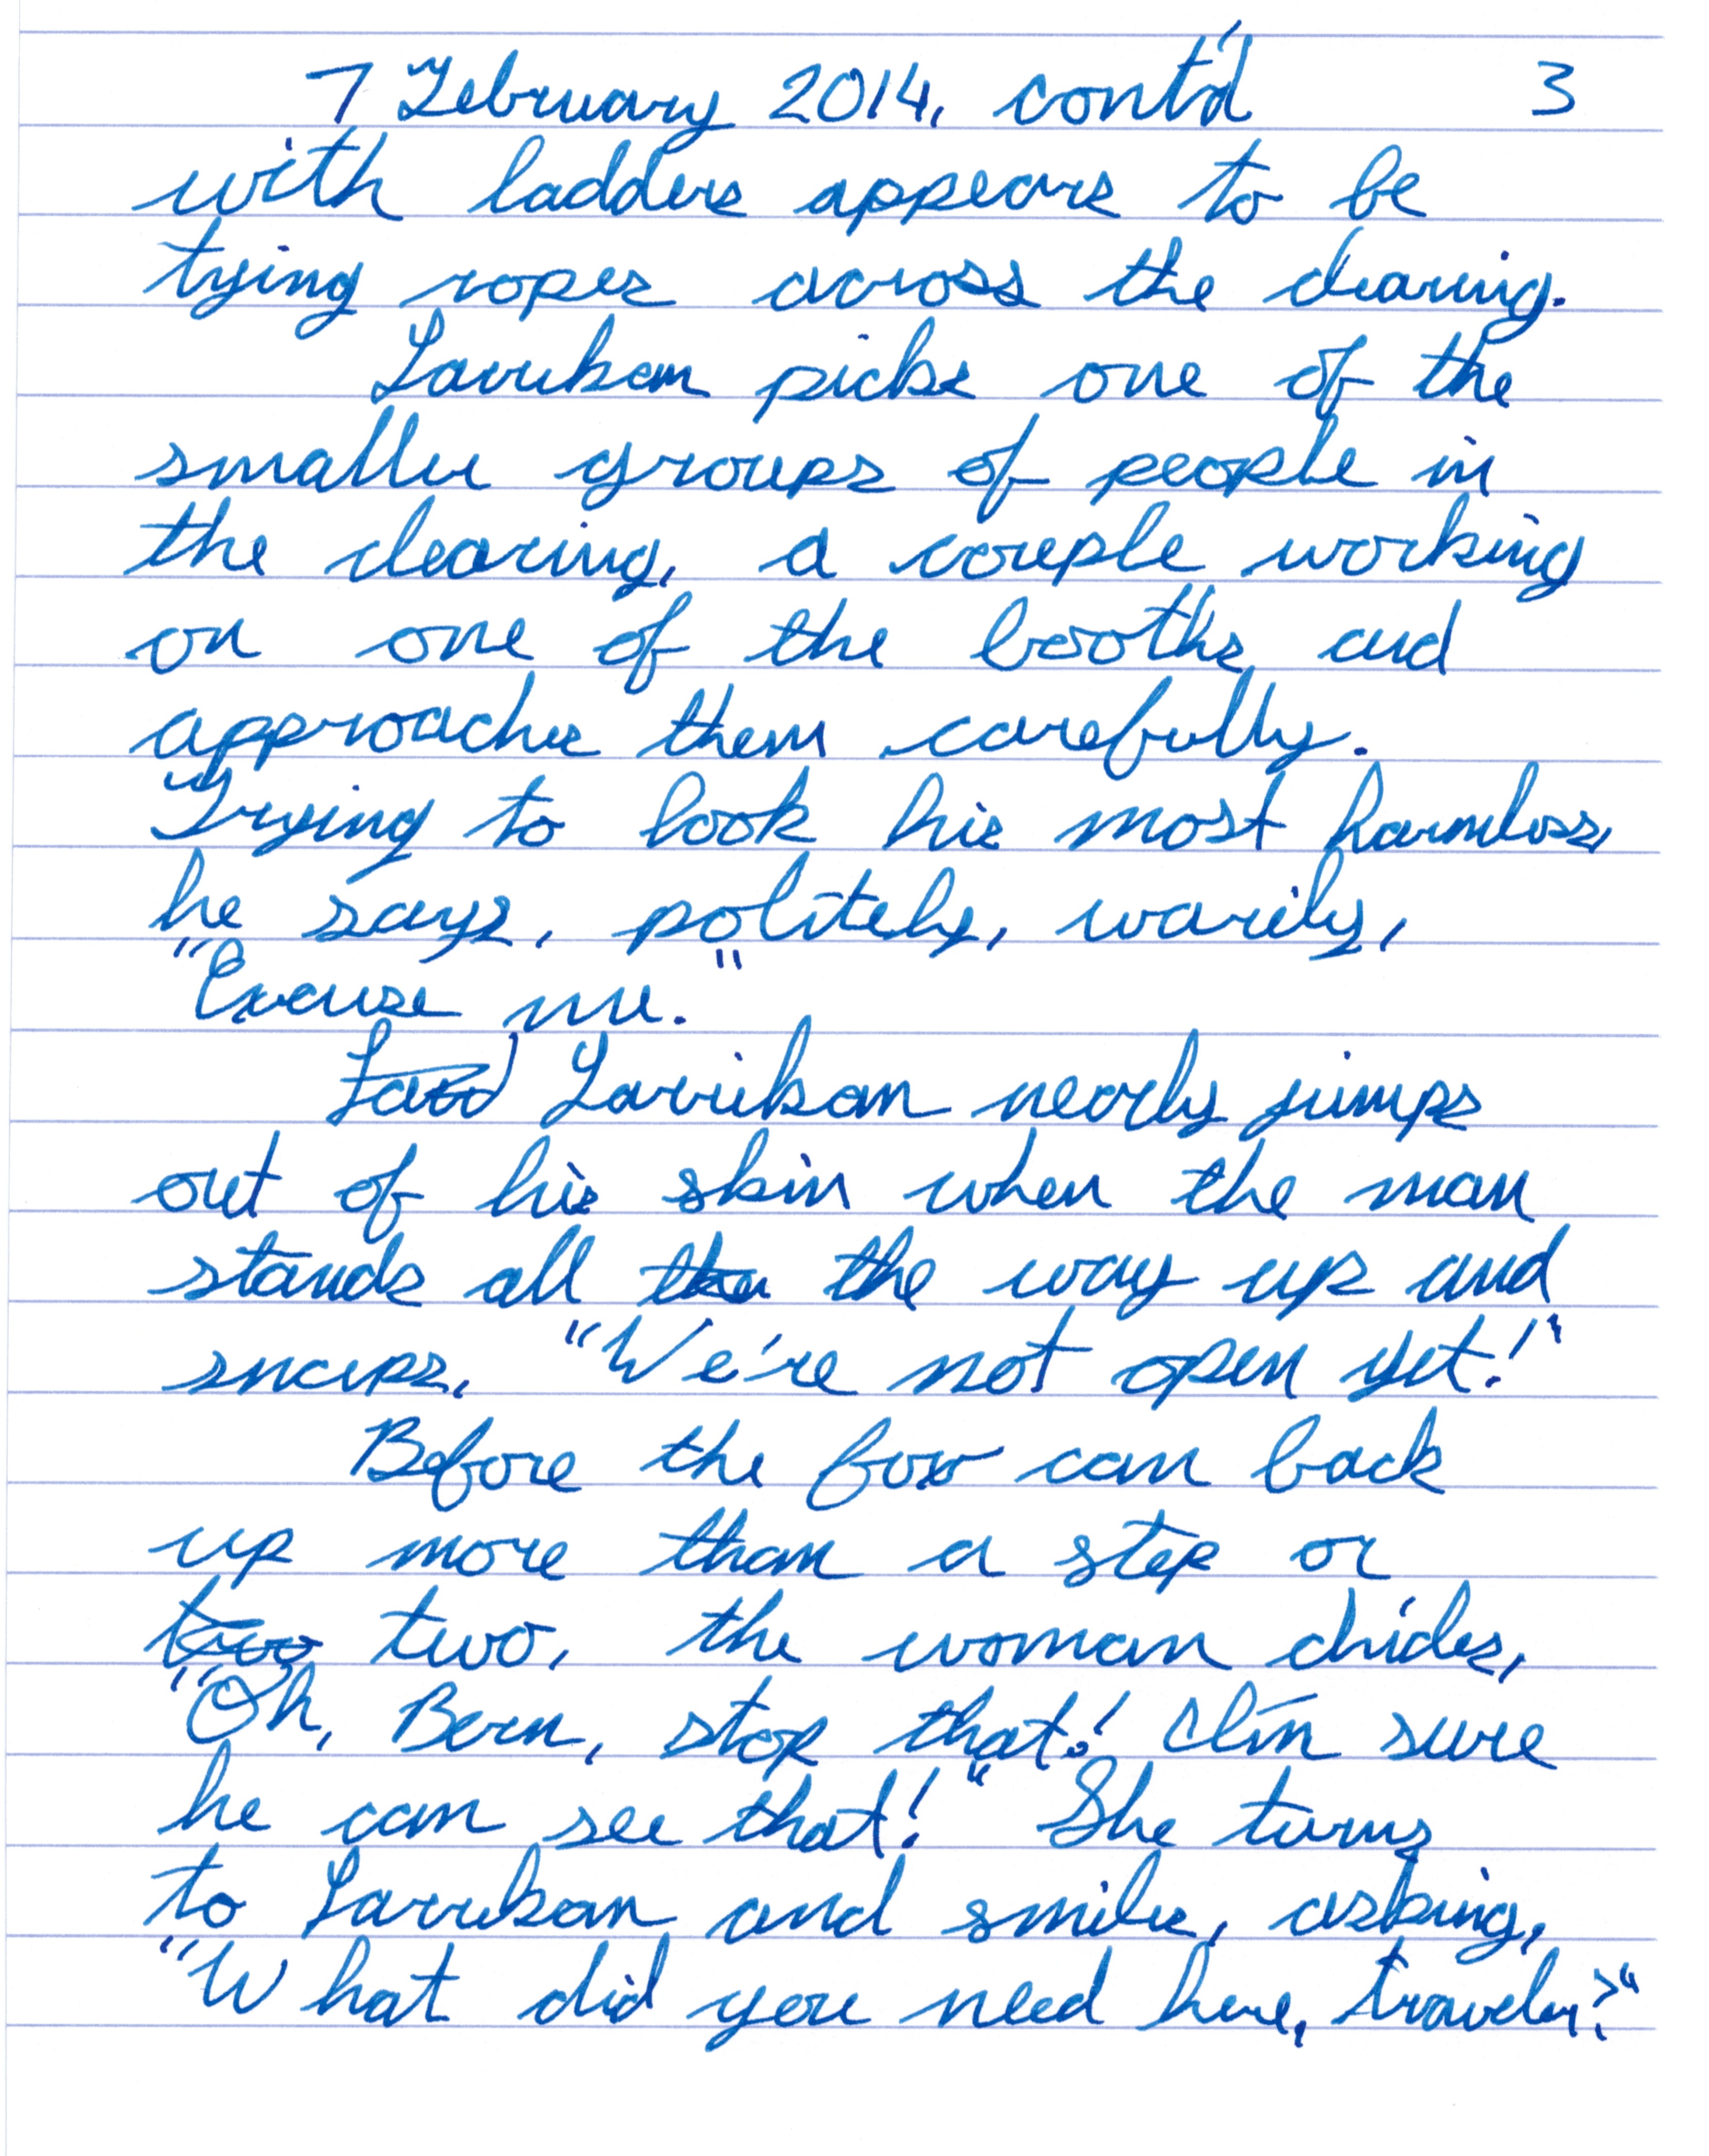 7 February 2014, cont'd 3
with ladders appears to be
tying ropes across the clearing.
Larrikan picks one of the
smaller groups of people in
the clearing, a couple working
on one of the booths, and
approaches them carefully.
Trying to look his most harmless,
he says, politely, warily,
"Excuse me."
Larrikan nearly jumps
out of his skin when the man
stands all the the way up and
snaps, "We're not open yet!"
Before the fox can back
up more than a step or
two two, the woman chides,
"Oh, Bern, stop that! I'm sure
he can see that!" She turns
to Larrikan and smiles, asking,
"What did you need here, traveler?"